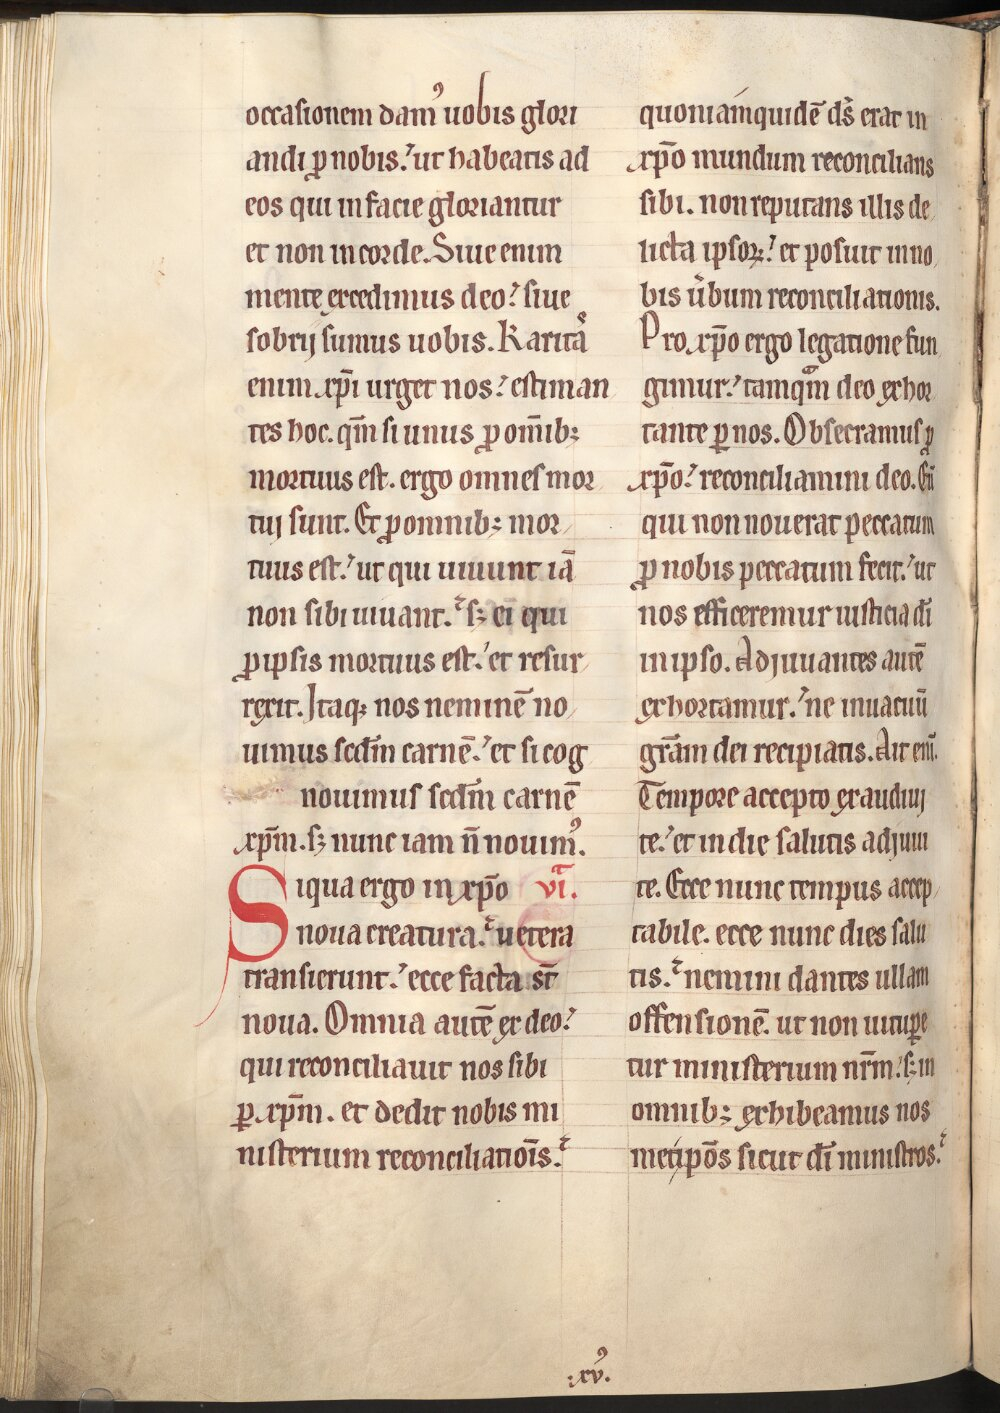 occasionem damꝰ uobis glori
andi ꝓ nobis. ut habeatis ad
eos qui in facie gloriantur
et non in corde. Siue enim
mente excedimus deo. siue
sobrij sumus uobis. Karitas
enim xp̄i urget nos. estiman
tes hoc. qm̄ si unus ꝓ om̄ib;
mortuus est. ergo omnes mor
tuj sunt. Et ꝓ omnib; mor
tuus est. ut qui uiuunt iā
non sibi uiuant. s; ei qui
ꝓ ipsis mortuus est. et resur
rexit. Itaq; nos neminē no
uimus scdm̄ carnē. et si cog
nouimus scdm̄ carnē
xp̄m. s; nunc iam n̄ nouimꝰ.
Siqua ergo in xp̄o vi.
noua creatura. uetera
transierunt. ecce facta st̄
noua. Omnia autē ex deo.
qui reconciliauit nos sibi
ꝑ xp̄m. et dedit nobis mi
nisterium reconciliatiōis.
quoniam quidē ds̄ erat in
xp̄o mundum reconcilians
sibi. non reputans illis de
licta ipsoꝝ. et posuit in no
bis u̇bum reconciliationis.
Pro xp̄o ergo legatione fun
gimur. tamqᵃm deo exhor
tante ꝑ nos. Obsecramus ꝓ
xp̄o. reconciliamini deo. Eū
qui non nouerat peccatum
ꝓ nobis peccatum fecit. ut
nos efficeremur iusticia dī
in ipso. Adjuuantes autē
exhortamur. ne in uacuū
gr̄am dei recipiatis. Ait eni̅.
Tempore accepto exaudiuj
te. et in die salutis adjuui
te. Ecce nunc tempus accep
tabile. ecce nunc dies salu
tis. nemini dantes ullam
offensionē. ut non uituꝑe
tur ministerium nr̄m. s; in
omnib; exhibeamus nos
metipōs sicut dī ministros.
.xvꝰ.